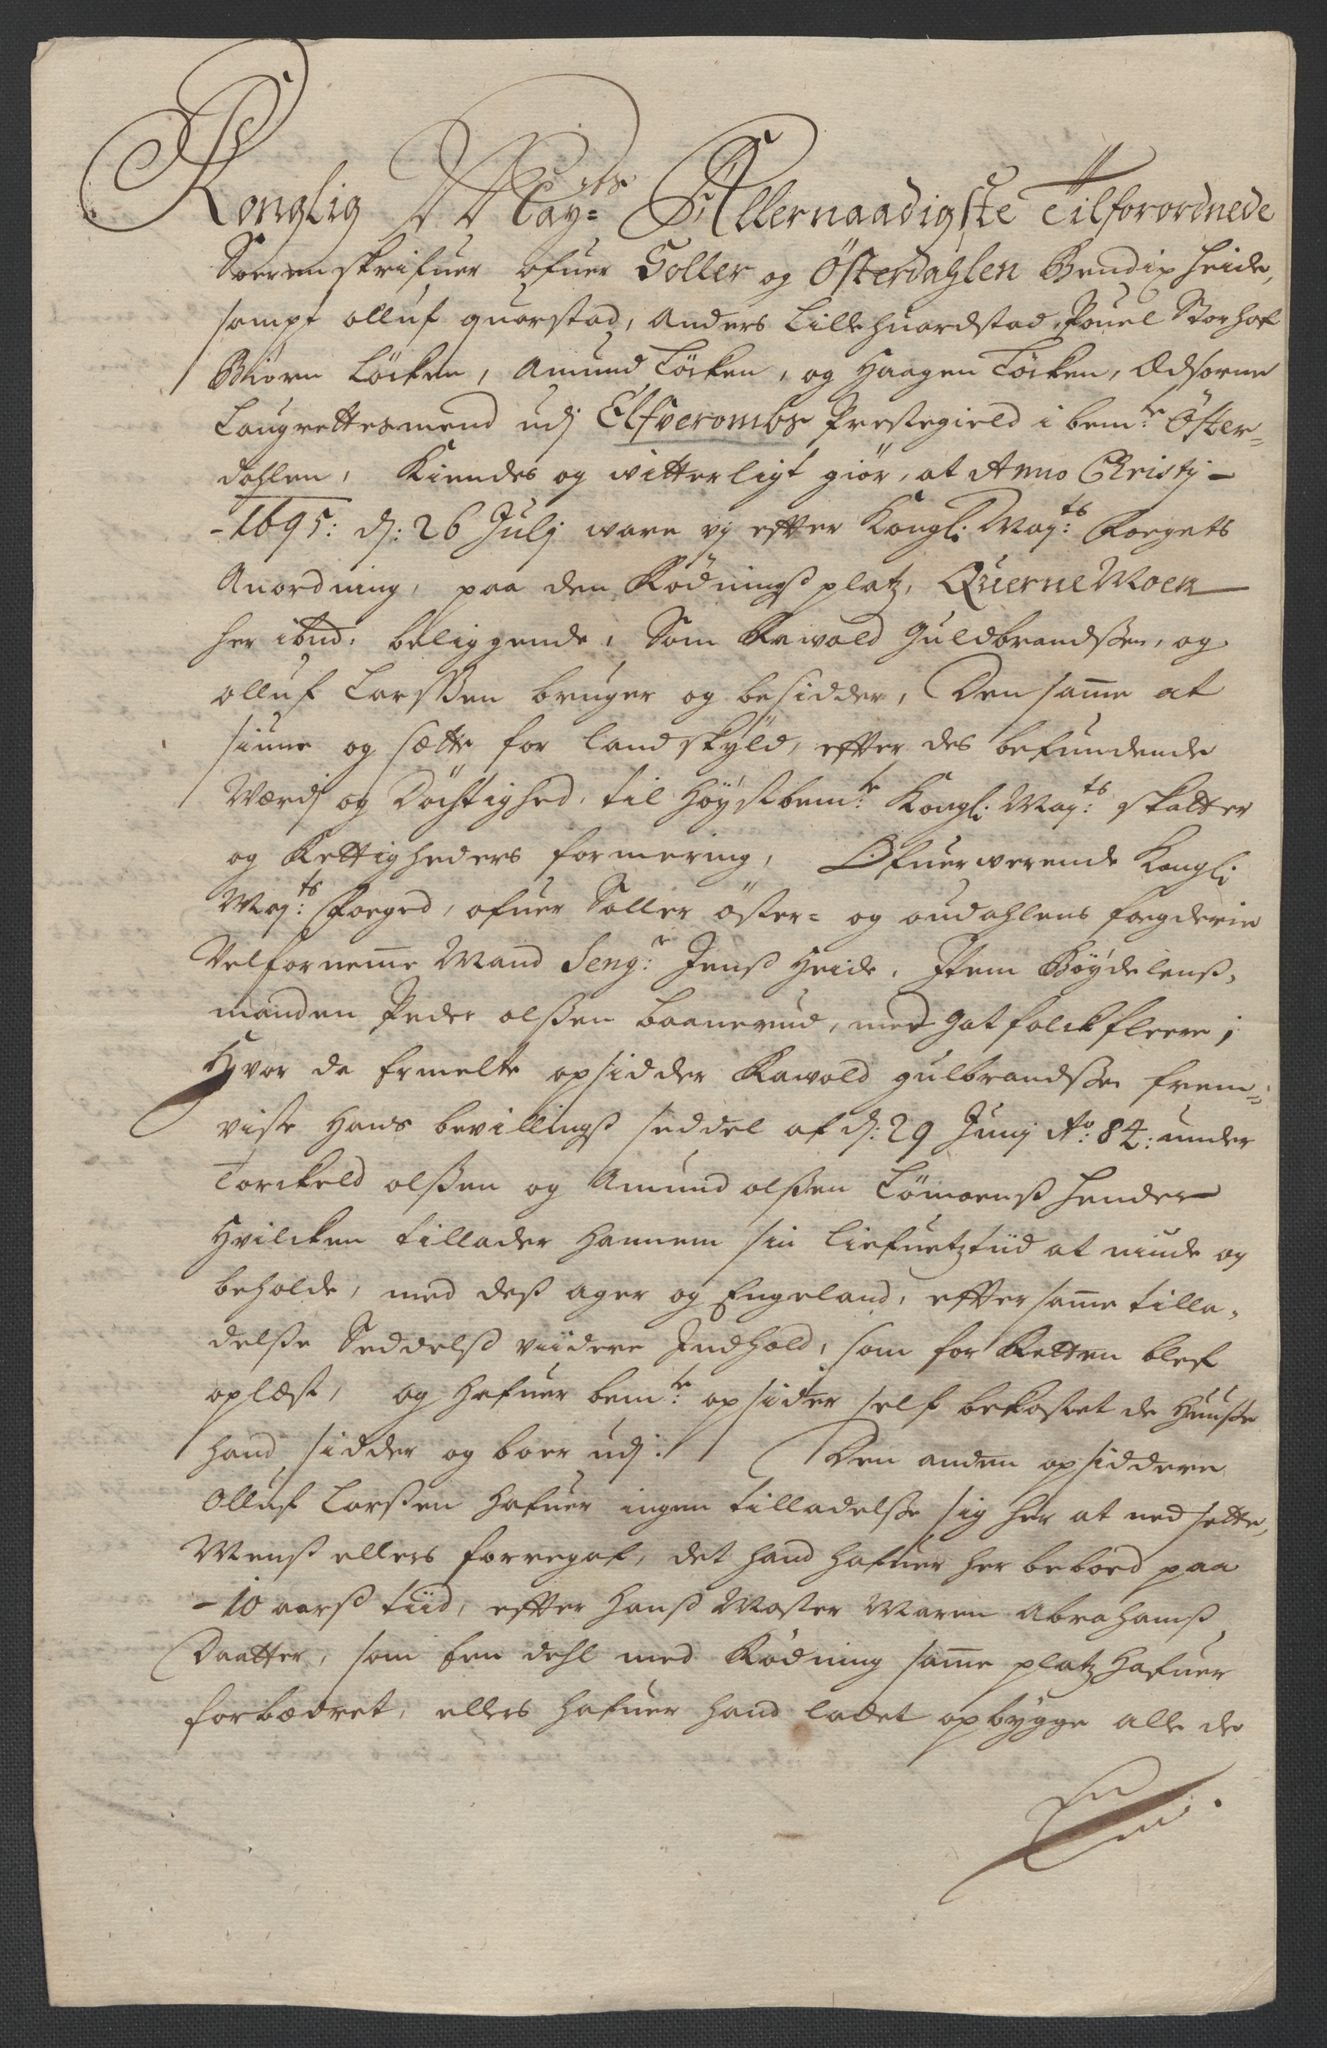 Konglig Maÿ:ts Allernaadigste Tilforordnede
Sorenskrifuer ofuer Soller og Österdahlen Bendix Heide,
sampt olluf quarstad, Anders Lillehuardstad, Pouel Storhof
Biörn Löcken, Amund Löcken, og Haagen Löcken, Edsorne
Laugrettesmend udj Elfverombs Prestegield i bem:te Öster-
dahlen, Kiendes og witterligt giör, at Anno Christj -
- 1695: d: 26 Julj ware vj efter Kongl: May:ts Foegets
Anordning, paa den Rödningsplatz, QuerneMoen
her ibnd: beliggende, Som Rawald Guldbrandssen, og
olluf Larssen bruger og besidder, Den same at
siune og sette for landskÿld, efter des befundende
Værdj og Döchtighed, til Höÿstbem:te Kongl: Maÿ:ts skatter
og Rettigheders formering, Ofuerwerende Kongl:
Maÿ:ts Foeged, ofuer Soller öster- og oudahlens fogderie
Velforneme Mand Seng:r Jenss Heide, Item Böÿdelenss-
manden Peder olssen baanerud, med Got folck fleere;
Hvor da Ermelte opsidder Rawold gulbrandssen frem-
viste Hans bevillingss seddel af d: 29 Junj Ao: 84: under
Torckeld olssen og Amund olssen Lömoenss Hender
Hvilcken tillader hannem sin Liefuetztiid at niude og
beholde, med dess ager og Engeland, efter same tilla-
delsse Seddelss viidere Indhold, som for Retten blef
oplæst, og Hafuer bem:te opsider self bekostet de Huusse
hand sidder og boer udj. Den anden opsiddere
Olluf Larssen Hafuer ingen tilladelsse sig her at ned sette,
Menss ellers forregaf, det hand hafuer her beboed paa
- 10 aarss tiid, efter Hanss Moster Maren Abrahamss
Daatter, som Een dehl med Rödning same platz Hafuer
forbædret, ellers hafuer hand ladet opbÿgge alle de